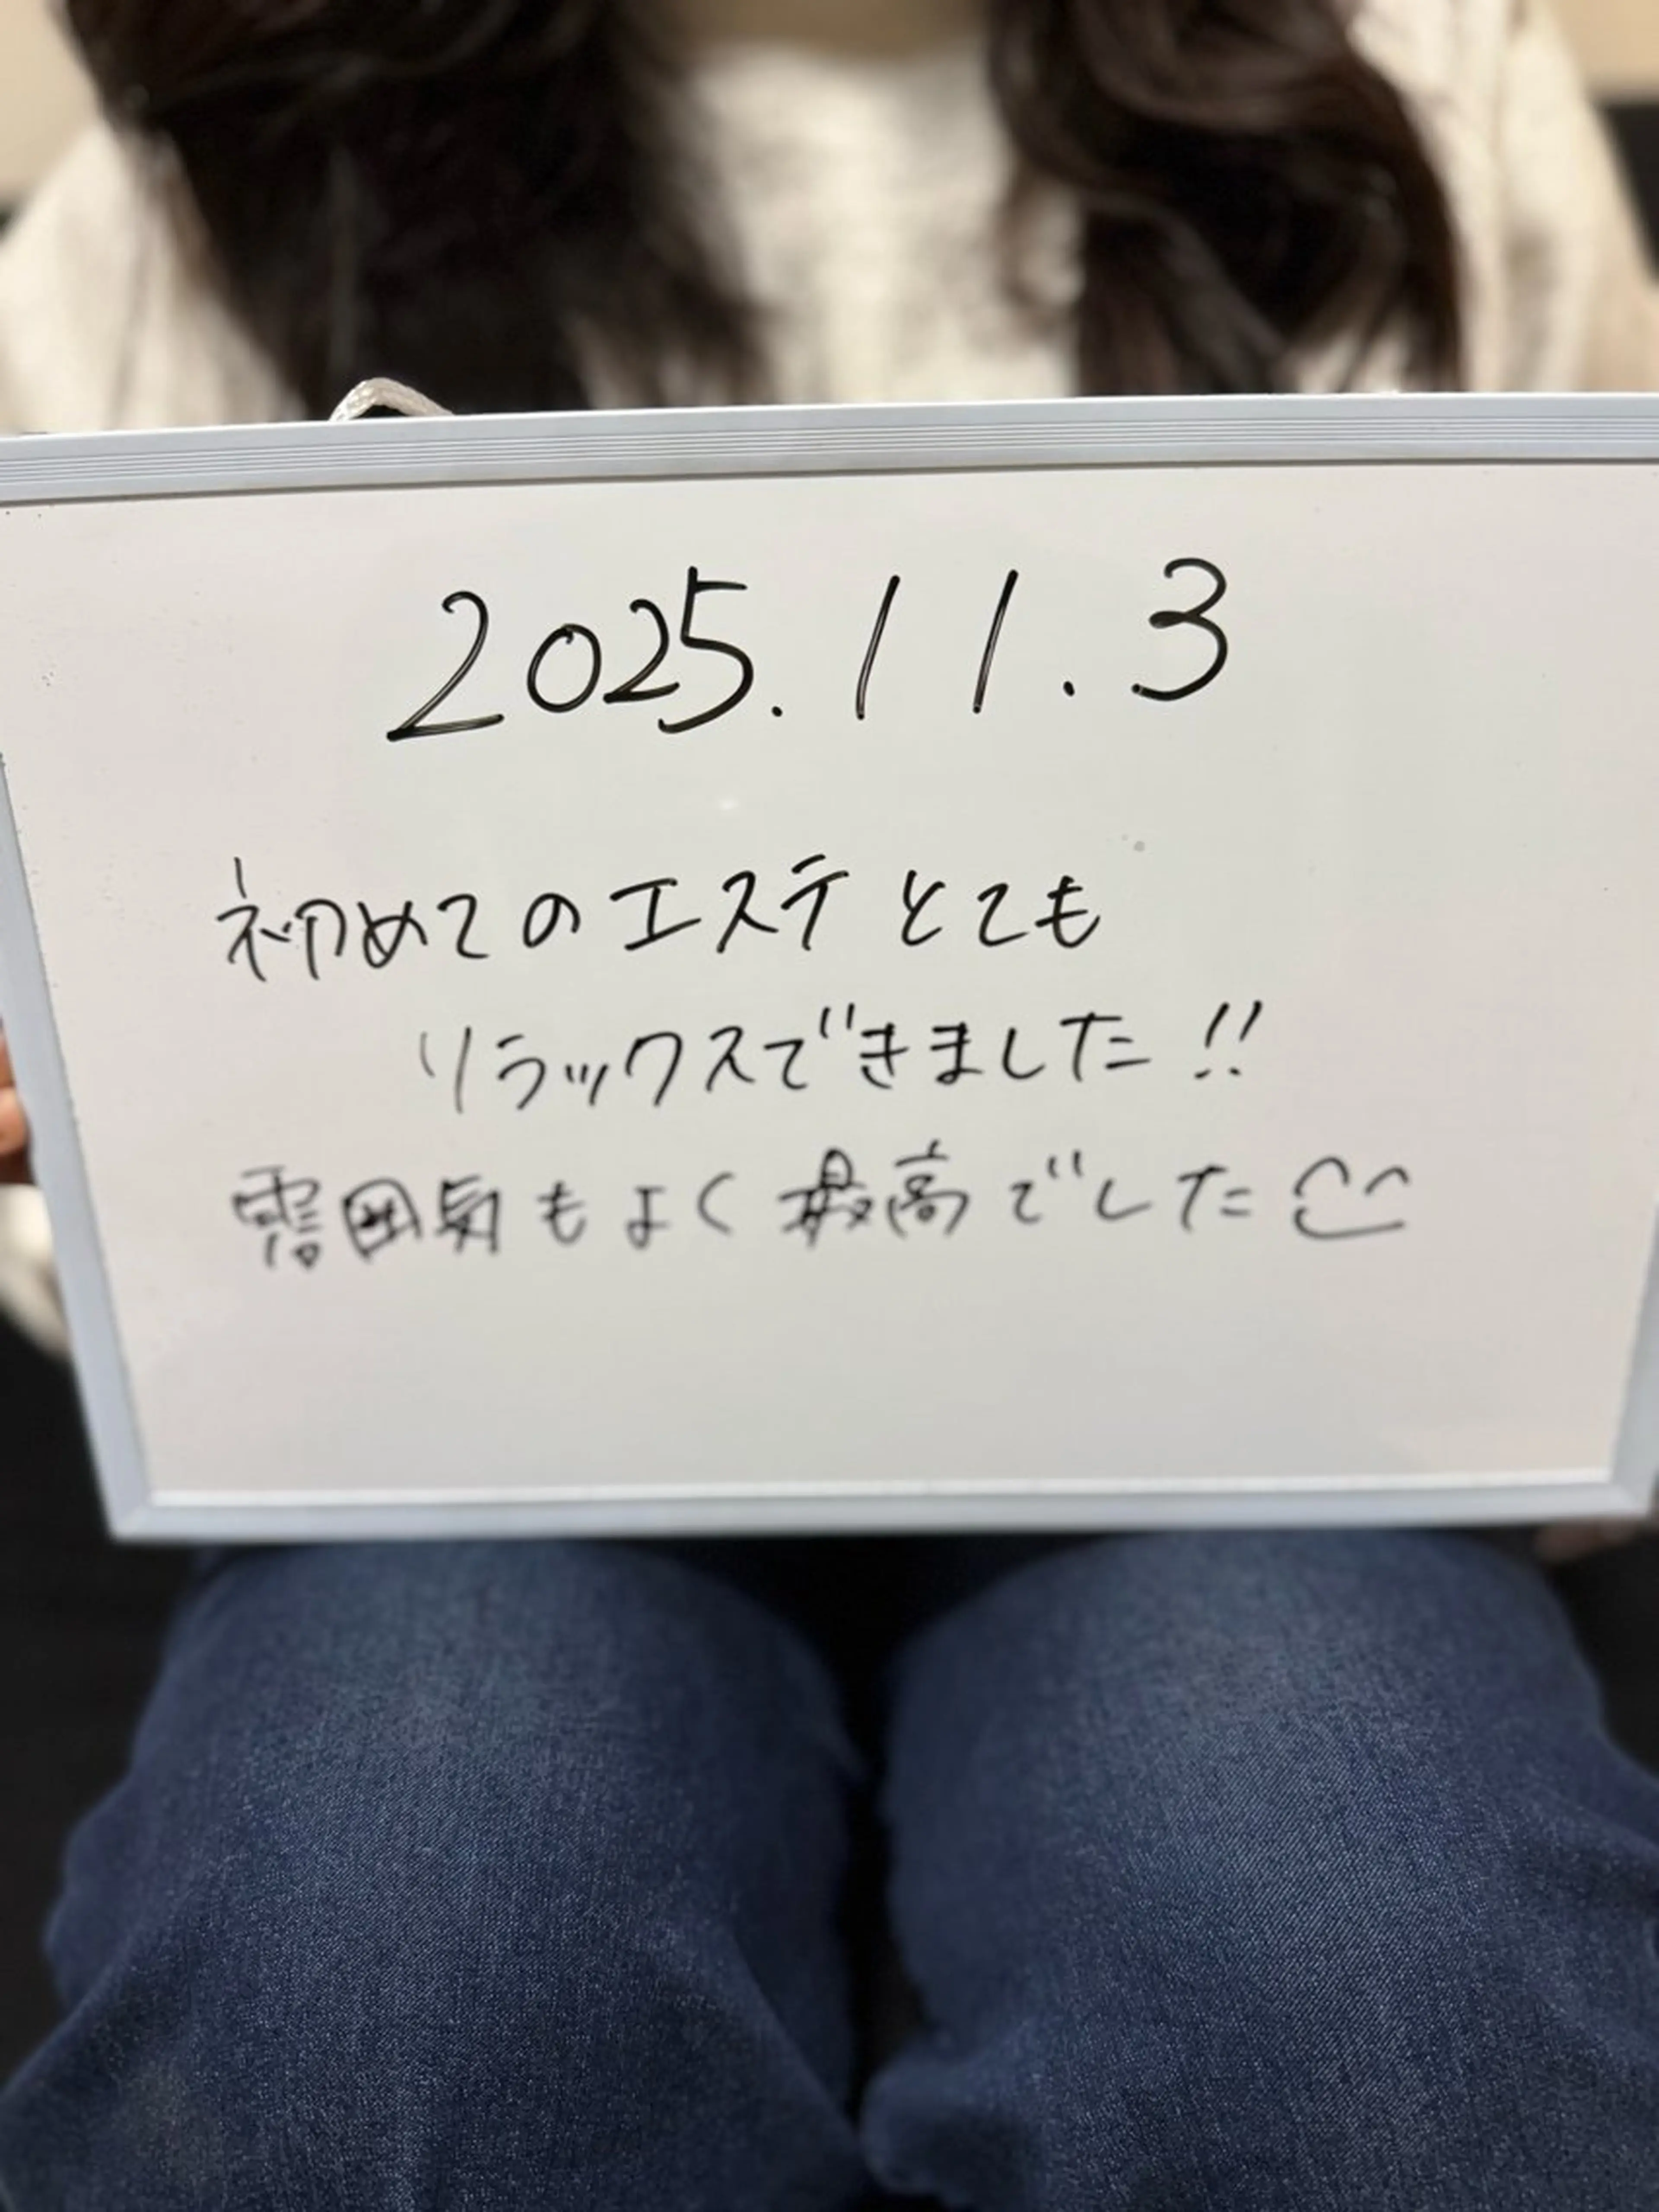 2025.11.3
初めてのエステとても
リラックスできました!!
雰囲気もよく最高でした